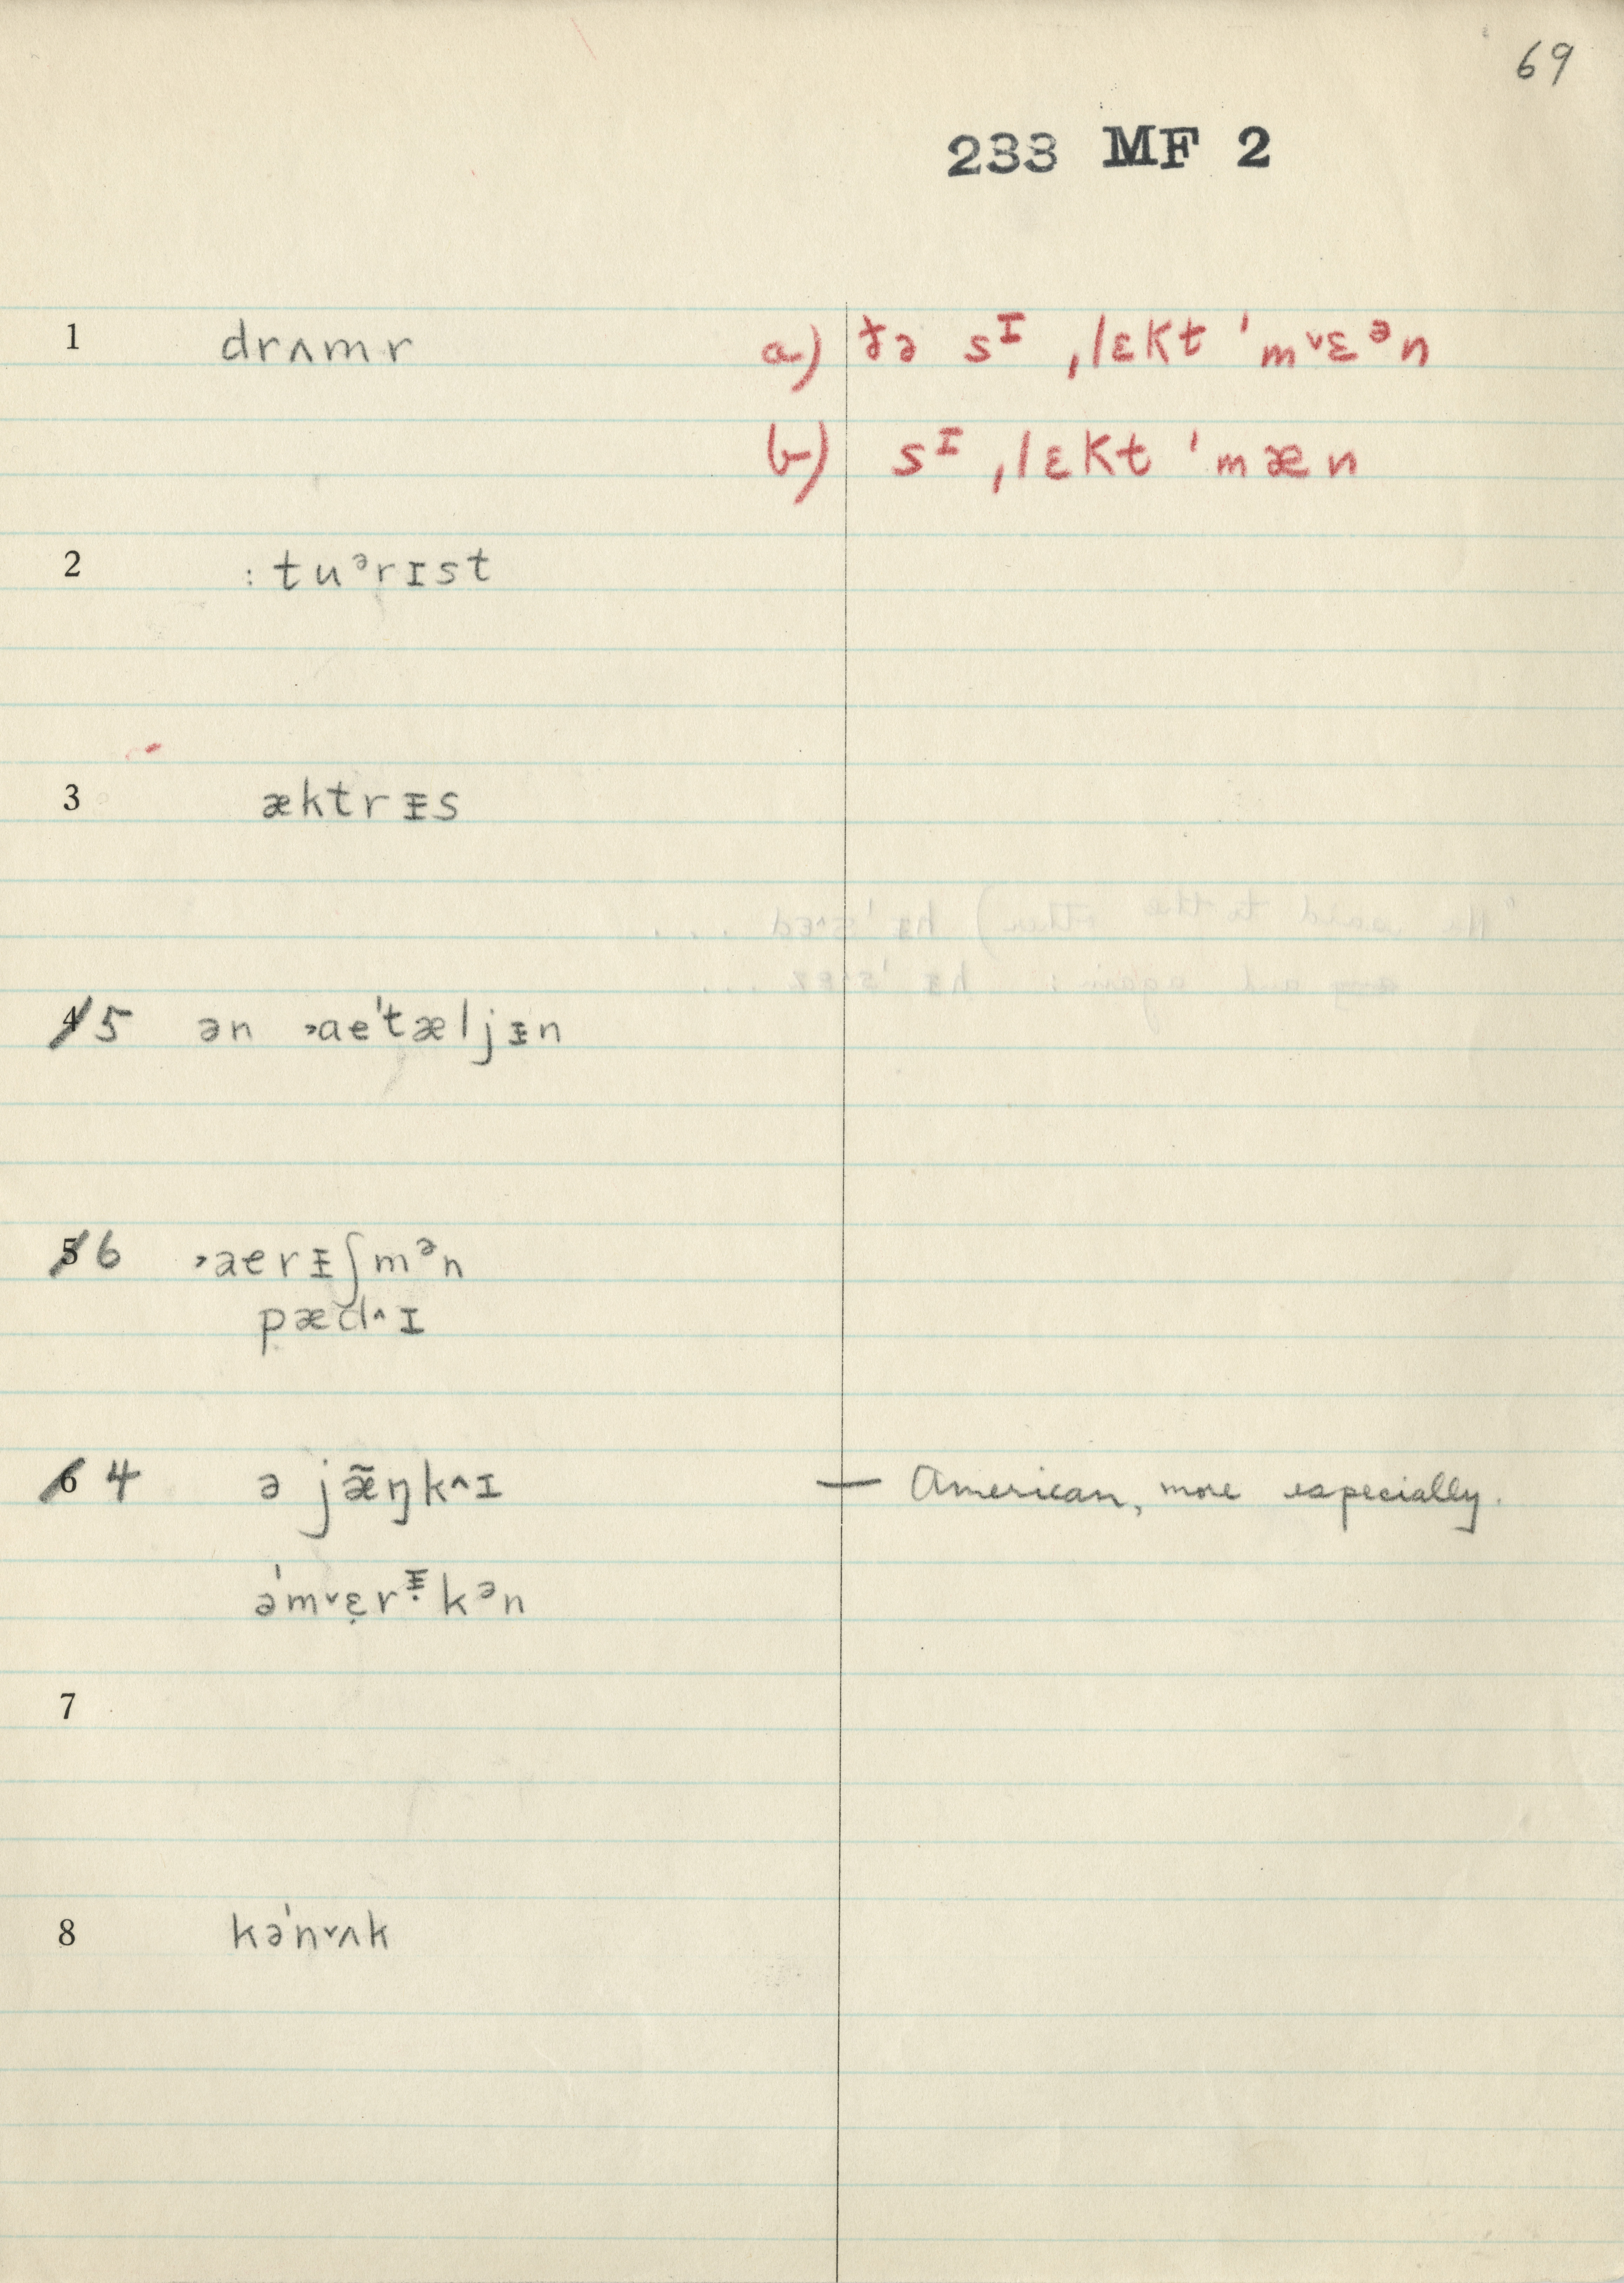 69
233 MF 2
1 drʌmr a) ðə sᴵ ˌlɛkt ˈm˅ɛᵊn
b) sᴵ ˌlɛkt ˈmæn
2 :tuᵊrɪst
3 æktrᵻs
4 5 ən ˒aeˈtæljᵻn
5 6 ˒aerᵻʃmᵊn
pæd^ɪ
6 4 ə jæ̃ŋk^ɪ — American, more especially.
əˈm˅ɛ̣rᵻ̣kᵊn
7
8 kəˈn˅ʌk